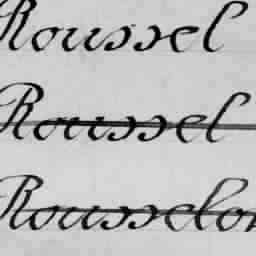 Roussel
Roussel
Rousselon